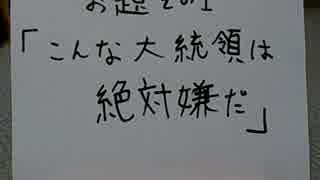 お題その1
「こんな大統領は
絶対嫌だ」